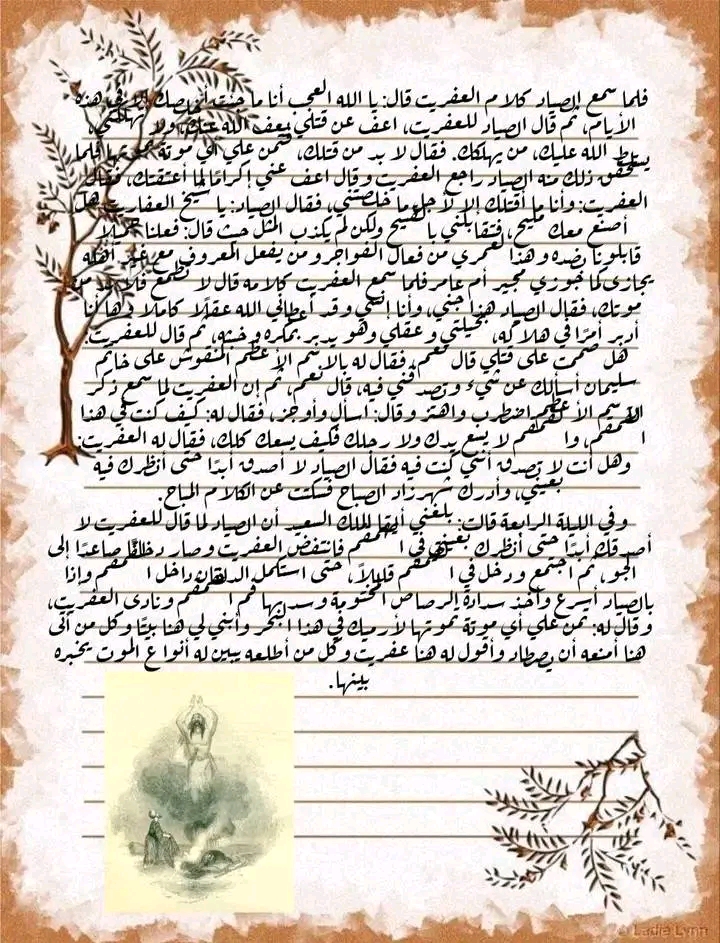 فلما سمع الصياد كلام العفريت قال: يا الله العجب أنا ما جئت أخلصك إلا في هذه
الأيام، ثم قال الصياد للعفريت، اعف عن قتلي يعف الله عنك، ولا تهلكني،
يسلط الله عليك، من يهلكك. فقال لا بد من قتلك، فتمن علي أي موتة تموتها فلما
تحقق ذلك منه الصياد راجع العفريت وقال اعف عني إكرامًا لما أعتقتك، فقال
العفريت: وأنا ما أقتلك إلا لأجل ما خلصتني، فقال الصياد: يا شيخ العفاريت هل
أصنع معك مليح، فتقابلني بالقبيح ولكن لم يكذب المثل حيث قال: فعلنا جميلًا
قابلونا بضده وهذا لعمري من فعال الفواجر ومن يفعل المعروف مع غير أهله
يجازى كما جوزي مجير أم عامر فلما سمع العفريت كلامه قال لا تطمع فلا بد من
موتك، فقال الصياد هذا جني، وأنا إنسي وقد أعطاني الله عقلًا كاملًا وها أنا
أدبر أمرًا في هلاكه، بحيلتي وعقلي وهو يدبر بمكره وخبثه، ثم قال للعفريت:
هل صممت على قتلي قال نعم، فقال له بالاسم الأعظم المنقوش على خاتم
سليمان أسألك عن شيء وتصدقني فيه، قال نعم، ثم إن العفريت لما سمع ذكر
الاسم الأعظم اضطرب واهتز وقال: اسأل وأوجز، فقال له: كيف كنت في هذا
القمقم، والقمقم لا يسع يدك ولا رجلك فكيف يسعك كلك، فقال له العفريت:
وهل أنت لا تصدق أنني كنت فيه فقال الصياد لا أصدق أبدًا حتى أنظرك فيه
بعيني، وأدرك شهرزاد الصباح فسكتت عن الكلام المباح.
وفي الليلة الرابعة قالت: بلغني أيها الملك السعيد أن الصياد لما قال للعفريت لا
أصدقك أبدًا حتى أنظرك بعيني في القمقم فانتفض العفريت وصار دخانًا صاعدًا إلى
الجو، ثم اجتمع ودخل في القمقم قليلًا، حتى استكمل الدخان داخل القمقم وإذا
بالصياد أسرع وأخذ سدادة الرصاص المختومة وسد بها فم القمقم ونادى العفريت،
وقال له: تمن علي أي موتة تموتها لأرميك في هذا البحر وأبني لي هنا بيتًا وكل من أتى
هنا أمنعه أن يصطاد وأقول له هنا عفريت وكل من أطلعه يبين له أنواع الموت يخبره
بينها.
© Ladie Lynn